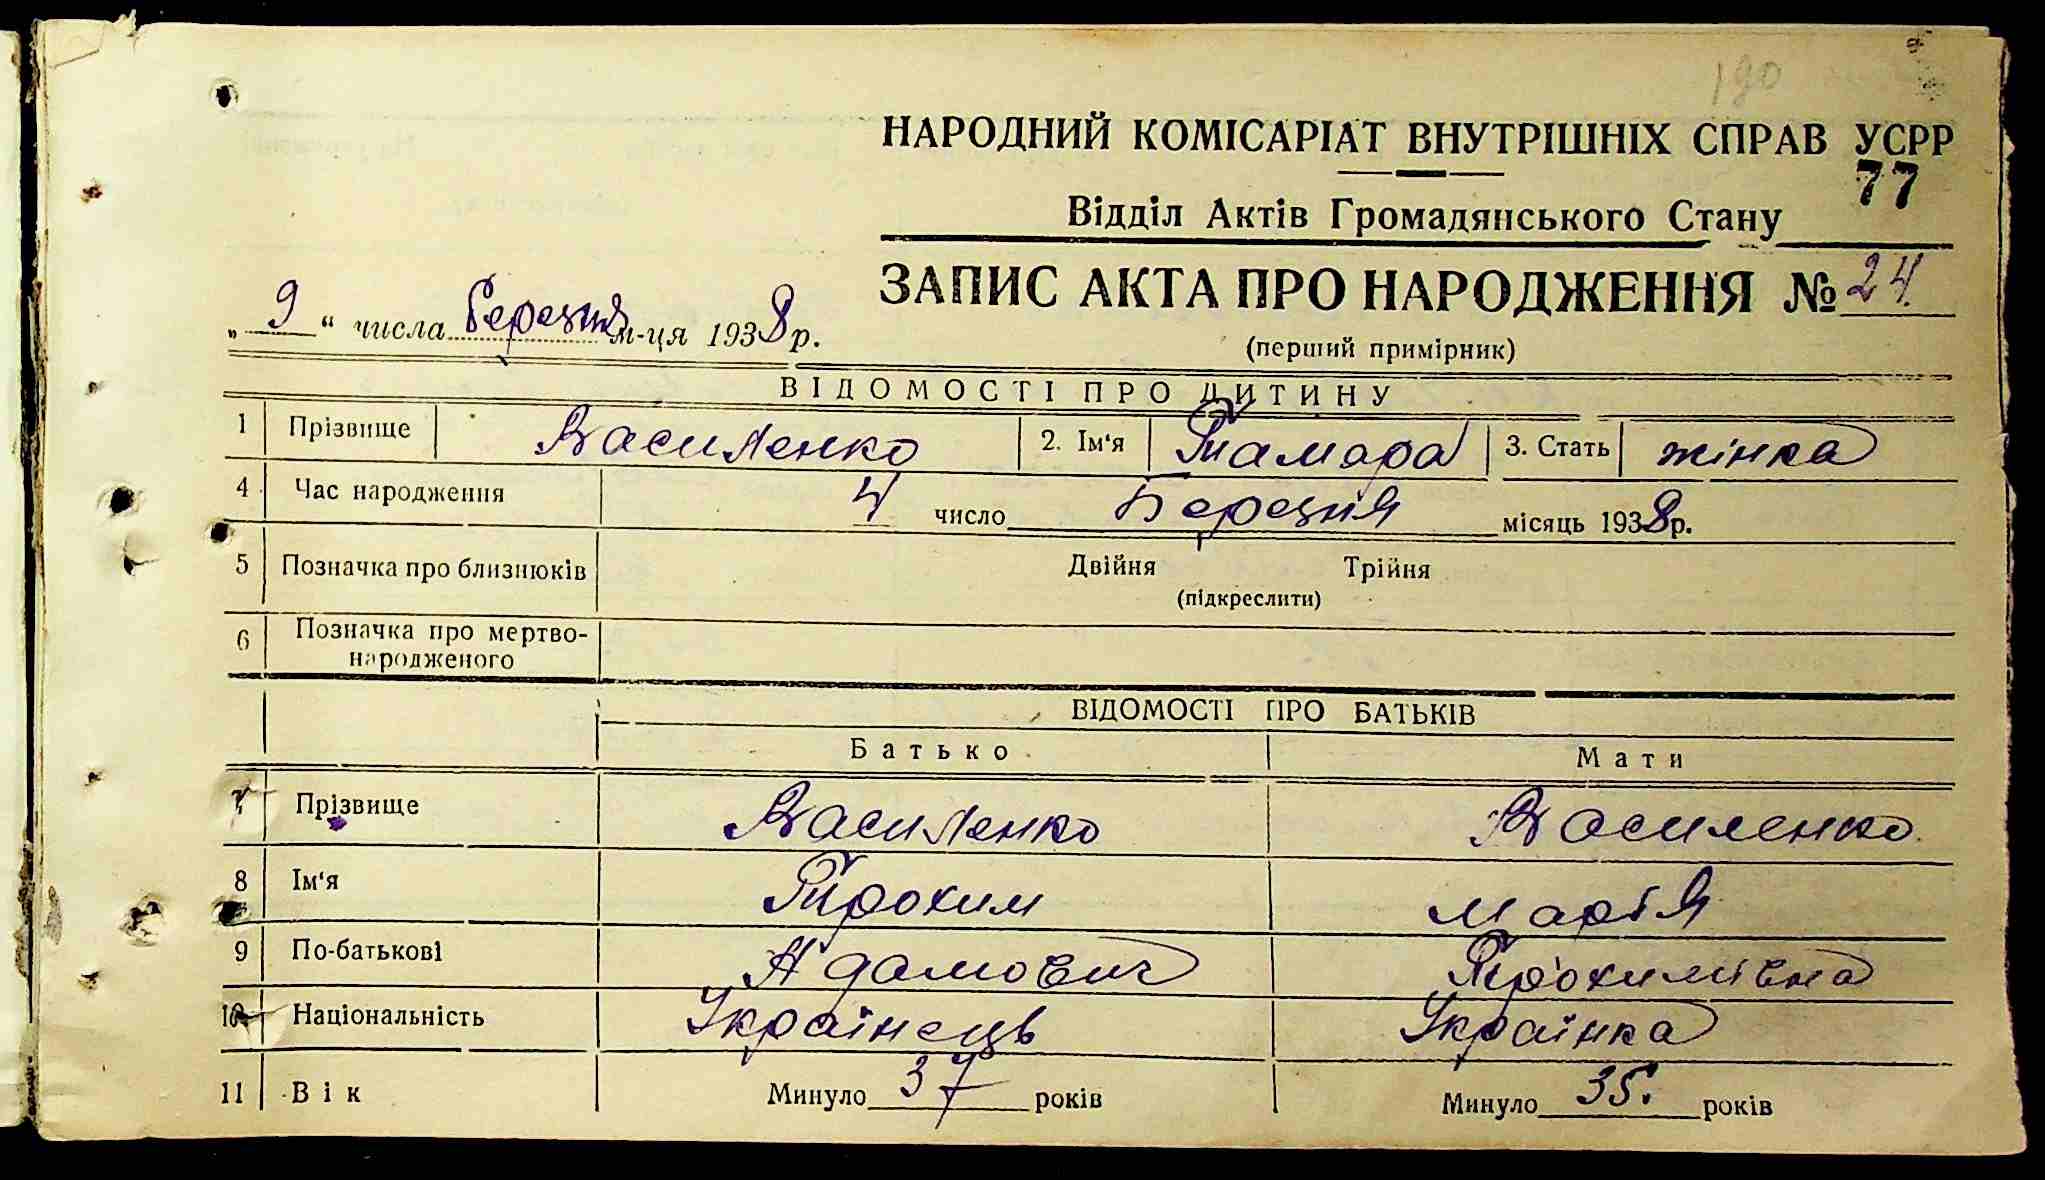 190
НАРОДНИЙ КОМІСАРІАТ ВНУТРІШНІХ СПРАВ УСРР
77
Відділ Актів Громадянського Стану
ЗАПИС АКТА ПРО НАРОДЖЕННЯ № 24
„ 9 “ числа березня м-ця 1938 р.
(перший примірник)
ВІДОМОСТІ ПРО ДИТИНУ
1 Прізвище Василенко 2. Ім'я Тамара 3. Стать жінка
4 Час народження 4 число Березня місяць 1938 р.
5 Позначка про близнюків Двійня Трійня
(підкреслити)
6 Позначка про мертво-
народженого
ВІДОМОСТІ ПРО БАТЬКІВ
Батько Мати
7 Прізвище Василенко Василенко
8 Ім'я Трохим Марія
9 По-батькові Адамович Трохимівна
10 Національність Українець Українка
11 Вік Минуло 37 років Минуло 35. років